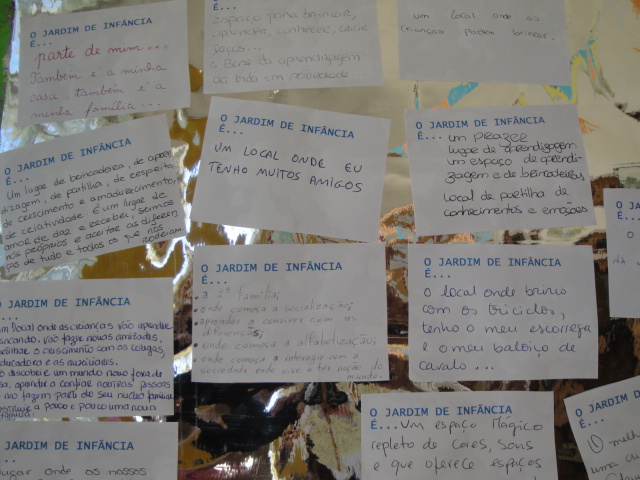 O JARDIM DE INFÂNCIA
É...
parte de mim...
Também é a minha
casa, também é a
minha família...
Espaço para brincar,
aprender, conhecer, criar
laços...
a Base da aprendizagem
da vida em sociedade...
um local onde as
crianças podem brincar.
O JARDIM DE INFÂNCIA
É...
UM LOCAL ONDE EU
TENHO MUITOS AMIGOS
O JARDIM DE INFÂNCIA
É... um PRAZER
lugar de aprendizagem
um espaço de aprendi-
zagem e de brincadeiras
local de partilha de
conhecimentos e emoções
O JARDIM DE INFÂNCIA
É...
Um lugar de brincadeira, de apren-
dizagem, de partilha, de respeito,
de crescimento e amadurecimento,
de criatividade. É um lugar de
amor, de dar e receber, sermos
nós próprios e aceitar as diferen-
ças de tudo e todos os que nos
rodeiam
O JA
É...
O
O JARDIM DE INFÂNCIA
É...
• a 2ª família;
• onde começa a socialização;
• aprender a conviver com as
diferenças;
• onde começa a alfabetização;
• onde começa a interagir com a
sociedade onde vive e ter noção do
mundo
O JARDIM DE INFÂNCIA
É...
O local onde brinco
com os triciclos,
tenho o meu escorrega
e o meu baloiço de
cavalo...
O JARDIM DE INFÂNCIA
um local onde as crianças vão aprender
brincando, vão fazer novas amizades,
partilhar o crescimento com os colegas,
educadora e as auxiliares.
descobrir um mundo novo fora de
casa, aprender a confiar noutras pessoas
que não fazem parte do seu núcleo familiar
constitui a pouco e pouco uma nova
família.
O JARDIM DE INFÂNCIA
É... Um espaço Mágico
repleto de Cores, Sons
e que oferece espaços
O JARDIM D
É...
O melh
uma
O JARDIM DE INFÂNCIA
lugar onde os nossos